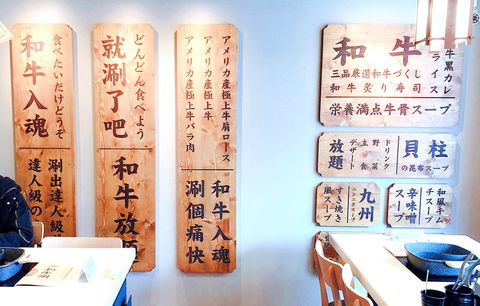 食べたいだけどうぞ
和牛入魂
涮出達人級の
達人級の
どんどん食べよう
就涮了吧
和牛放題
アメリカ産極上牛肩ロース
アメリカ産極上牛
アメリカ産極上牛バラ肉
和牛入魂
涮個痛快
和牛
三品厳選和牛づくし
和牛炙り寿司
牛黒カレー
ライス
栄養満点牛骨スープ
ドリンク
野菜
主食
デザート
放題
貝柱
の昆布スープ
九州
ニンニクスープ
すき焼き
風スープ
和風キム
チスープ
辛味噌
スープ
和牛